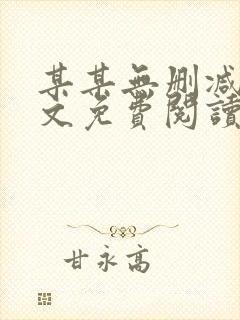 某某無刪减
文免費閱讀
甘永高